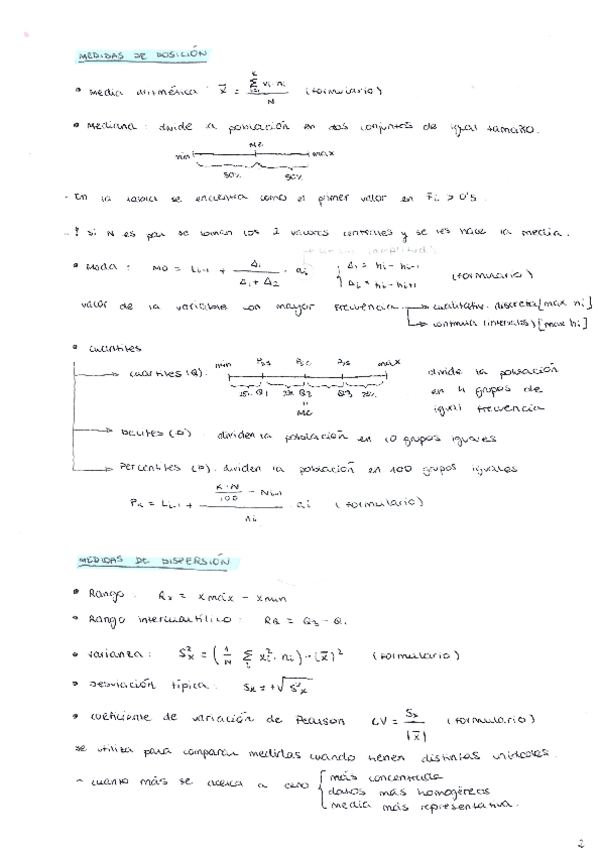 MEDIDAS DE POSICIÓN
• Media aritmética: x̄ = Σ xi · ni / N (formulario)
• Mediana: divide la población en dos conjuntos de igual tamaño.
Me
min max
50% 50%
- En la tabla se encuentra como el primer valor en Fi > 0's.
- ! si N es par se toman los 2 valores centrales y se les hace la media.
• Moda: Mo = Li-1 + Δ1 / (Δ1 + Δ2) · ai { Δ1 = hi - hi-1 (formulario)
Δ2 = hi - hi+1
valor de la variable con mayor frecuencia → cualitativa, discreta [max ni]
→ continua (intervalos) [max hi]
• cuantiles
min P25 P50 P75 max
→ cuartiles (Q): divide la población
25% Q1 25% Q2 Q3 25% en 4 grupos de
Me igual frecuencia
→ Deciles (D): dividen la población en 10 grupos iguales
→ Percentiles (P): dividen la población en 100 grupos iguales
Pk = Li-1 + (K·N/100 - Ni-1) / ni · ai (formulario)
MEDIDAS DE DISPERSIÓN
• Rango: Rx = xmáx - xmin
• Rango intercuartílico: RQ = Q3 - Q1
• Varianza: S²x = (1/N Σ xi² · ni) - (x̄)² (formulario)
• Desviación típica: Sx = +√S²x
• Coeficiente de variación de Pearson CV = Sx / |x̄| (formulario)
se utiliza para comparar medidas cuando tienen distintas unidades.
- cuanto más se acerca a cero { más concentrada
datos más homogéneos
media más representativa.
2